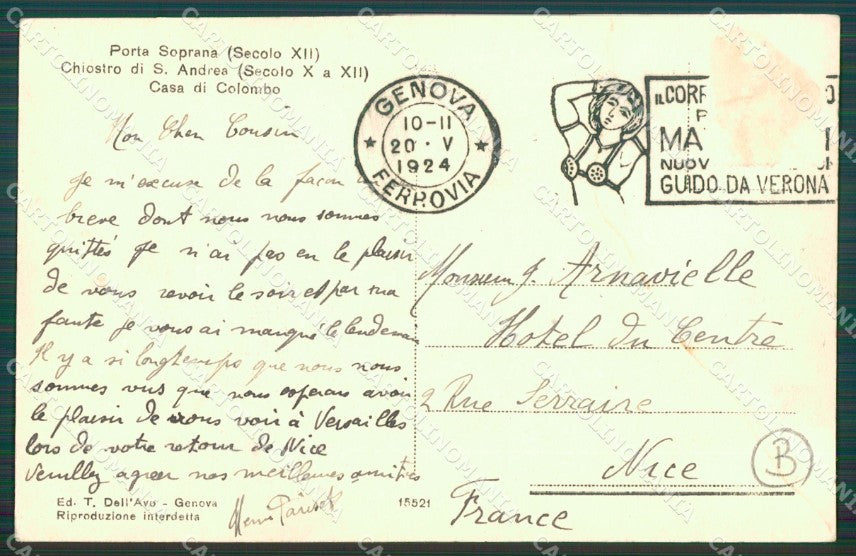 Porta Soprana (Secolo XII)
Chiostro di S. Andrea (Secolo X a XII)
Casa di Colombo
Mon Cher Cousin
Je m'excuse de la facon
breve dont nous nous sommes
quittés je n'ai pas eu le plaisir
de vous revoir le soir et par ma
faute je vous ai manque le lendemain
Il y a si longtemps que nous nous
sommes vus que nous esperons avoir
le plaisir de vous voir à Versailles
lors de votre retour de Nice
Veuillez agreer nos meilleures amitiés
Ed. T. Dell'Avo - Genova
Riproduzione interdetta
15521
GENOVA
10-11
20 · V
1924
FERROVIA
IL CORP
MA
NUOV
GUIDO DA VERONA
Monsieur J. Arnavielle
Hotel du Centre
2 Rue Serraire
Nice
France
B
CARTOLINOMANIA